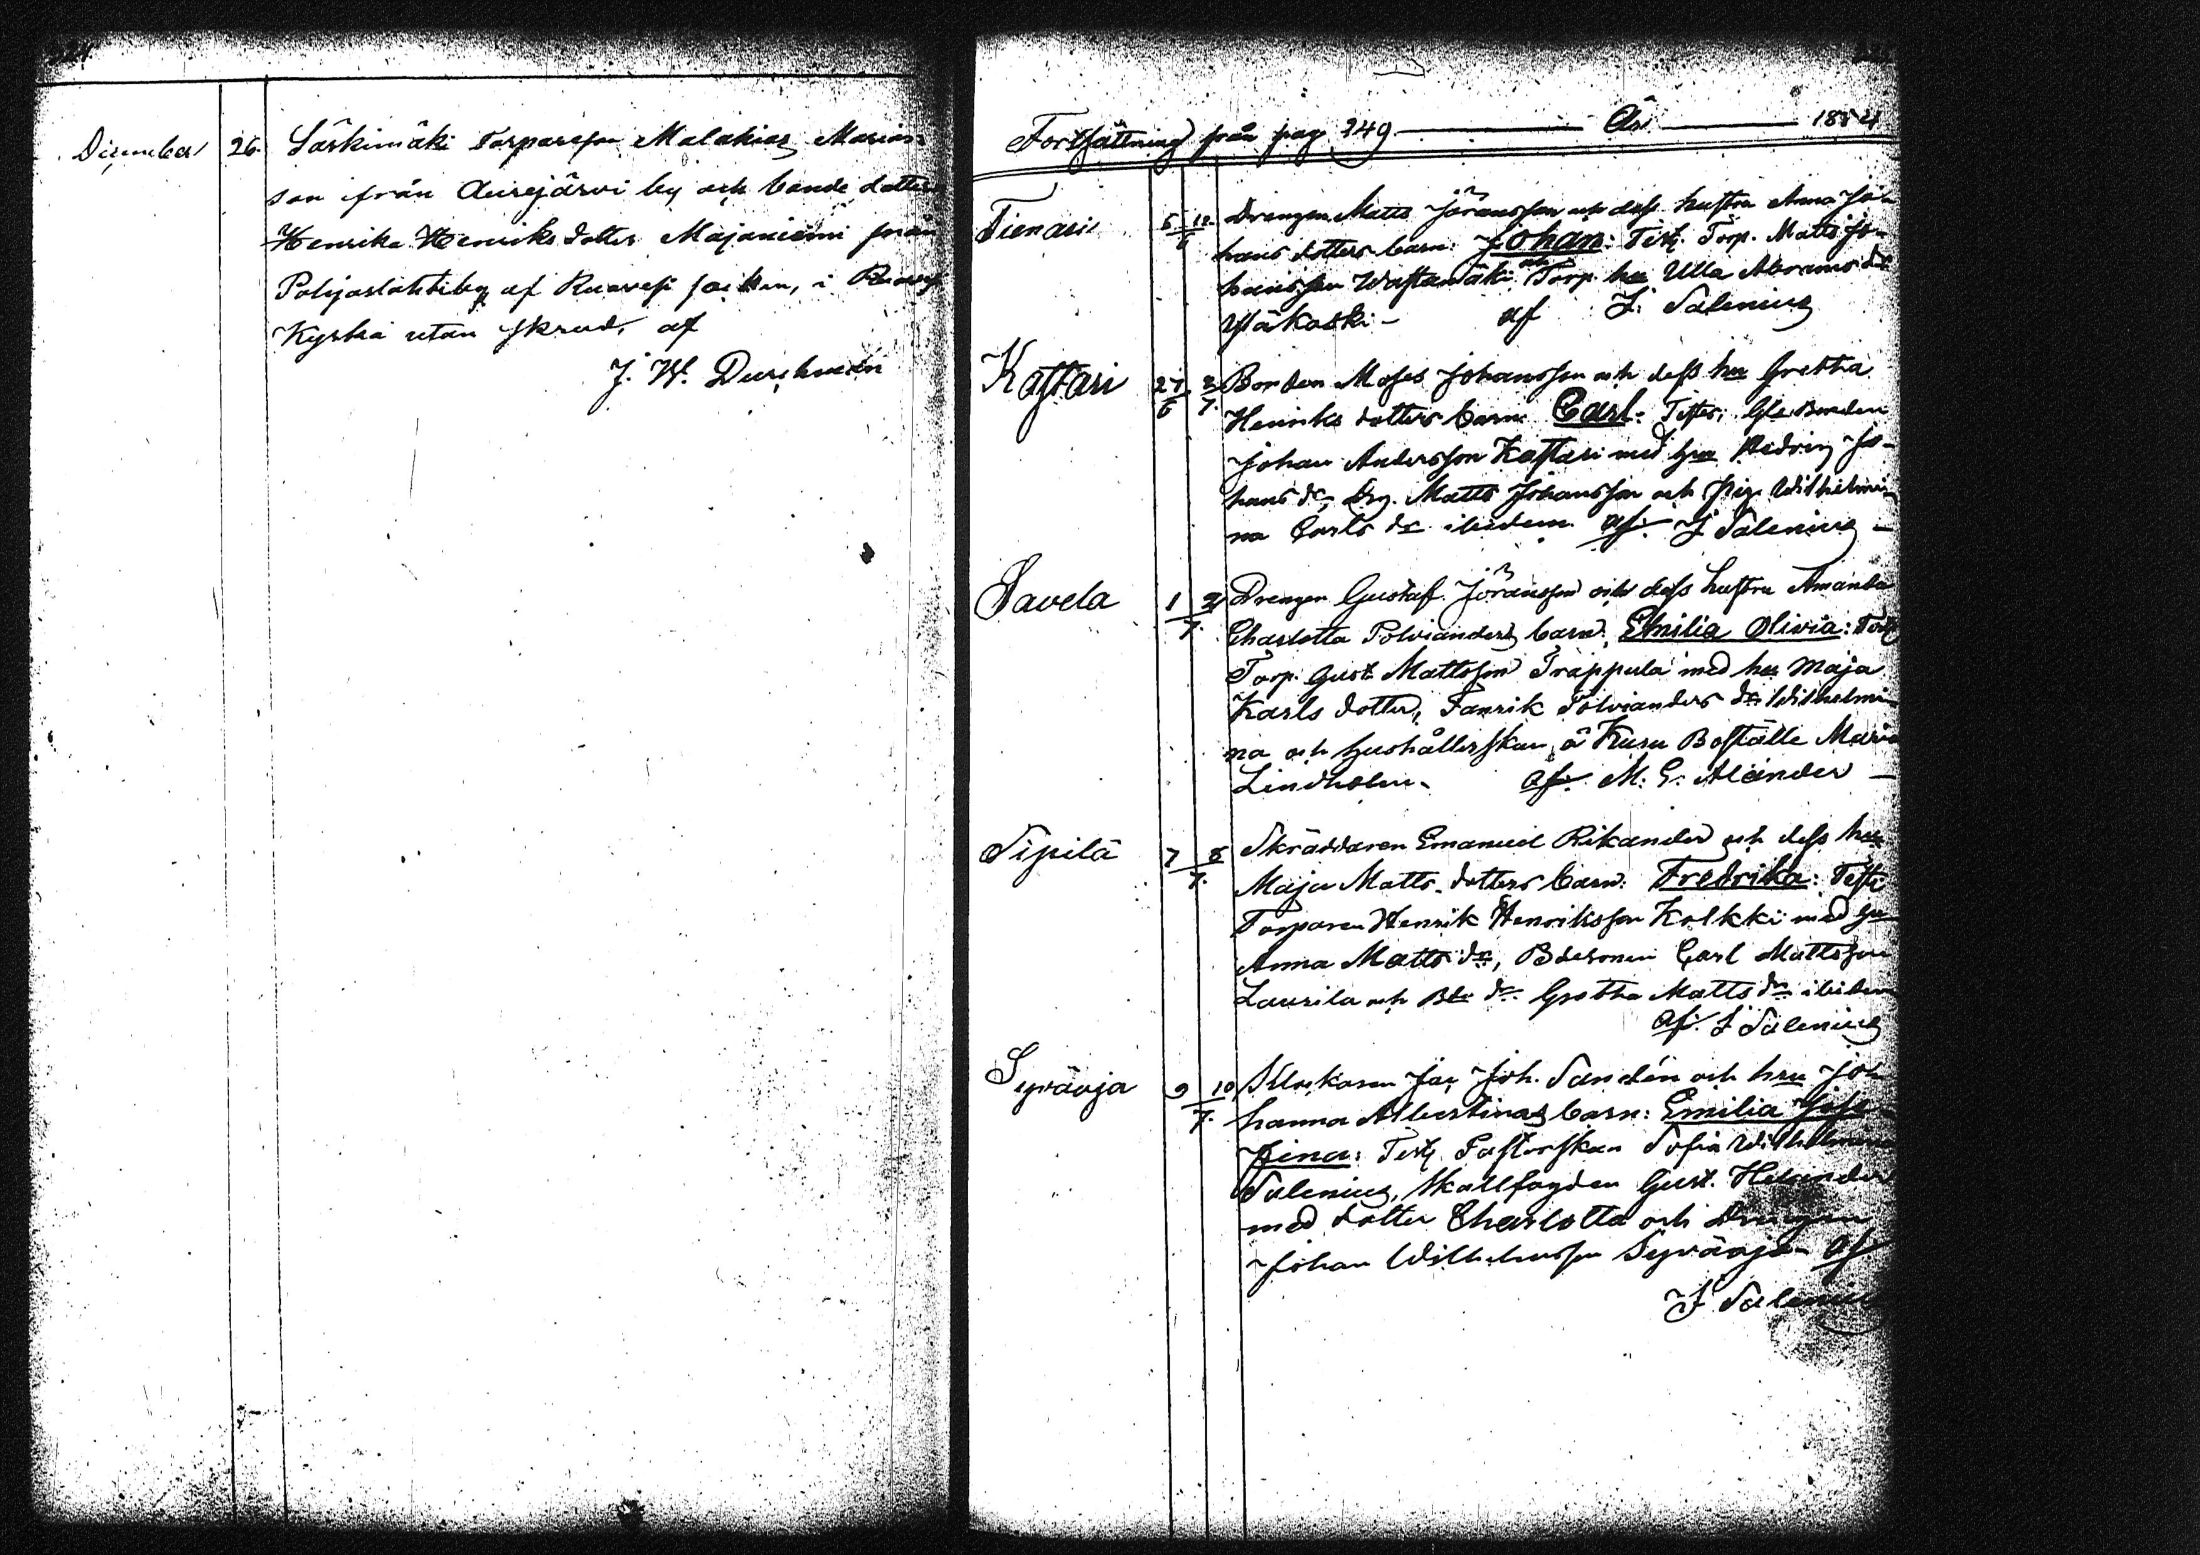 December 26. Särkimäki Torpareson Malakias Marias-
son ifrån Aurejärvi by och bonde dotter
Henrika Henriksdotter Majaniemi från
Pohjaslahti by af Ruovesi socken, i Ruovesi
Kyrka utan skrud, af
J. W. Durchman
Fortsättning från pag 249 År 1854
Tienari Drengen Matts Jöransson och dess hustru Anna Jo-
hans dotters barn: Johan: Test. Torp. Matts Jo-
hansson Wastamäki och Torp. hu Ulla Abrams dr
Ytäkoski - af J. Salenius
Kattari 27/6 2/7. Bonden Moses Johansson och dess hu Gretha
Henriks dotters barn Carl: Testes: Gle Bonden
Johan Andersson Kattari med hu Hedvig Jo-
hans dr, Drg. Matts Johansson och pig. Wilhelmi-
na Carls dr ibidem af J Salenius -
Savela 1 2/7. Drengen Gustaf Jöransson och dess hustru Amanda
Charlotta Polvianders barn. Emilia Olivia: Test
Torp. Gust Mattsson Trappula med hu Maja
Karls dotter, Fanrik Polvianders dr Wilhelmi-
na och hushållerskan å Kuru Boställe Maria
Lindholm. af. M. G. Alander -
Sipilä 7 8/7. Skräddaren Emanuel Rikander och dess hu
Maja Matts dotters barn: Fredrika: Test:
Torparen Henrik Henriksson Kolkki med hu
Anna Matts dr, Bdesonen Carl Mattsson
Laurila och Bde dr Gretha Matts dr ibidem
af. J Salenius
Syvänoja 9 10/7. Klockaren Joh. Sandén och hru Jo-
hanna Albertinas barn: Emilia Jose-
fina: Test. Pastorskan Sofia Wilhelmina
Salenius, Skallfogden Gust. Helander
med dotter Charlotta och Drengen
Johan Wilhelmsson Syvänoja - af
J Salenius